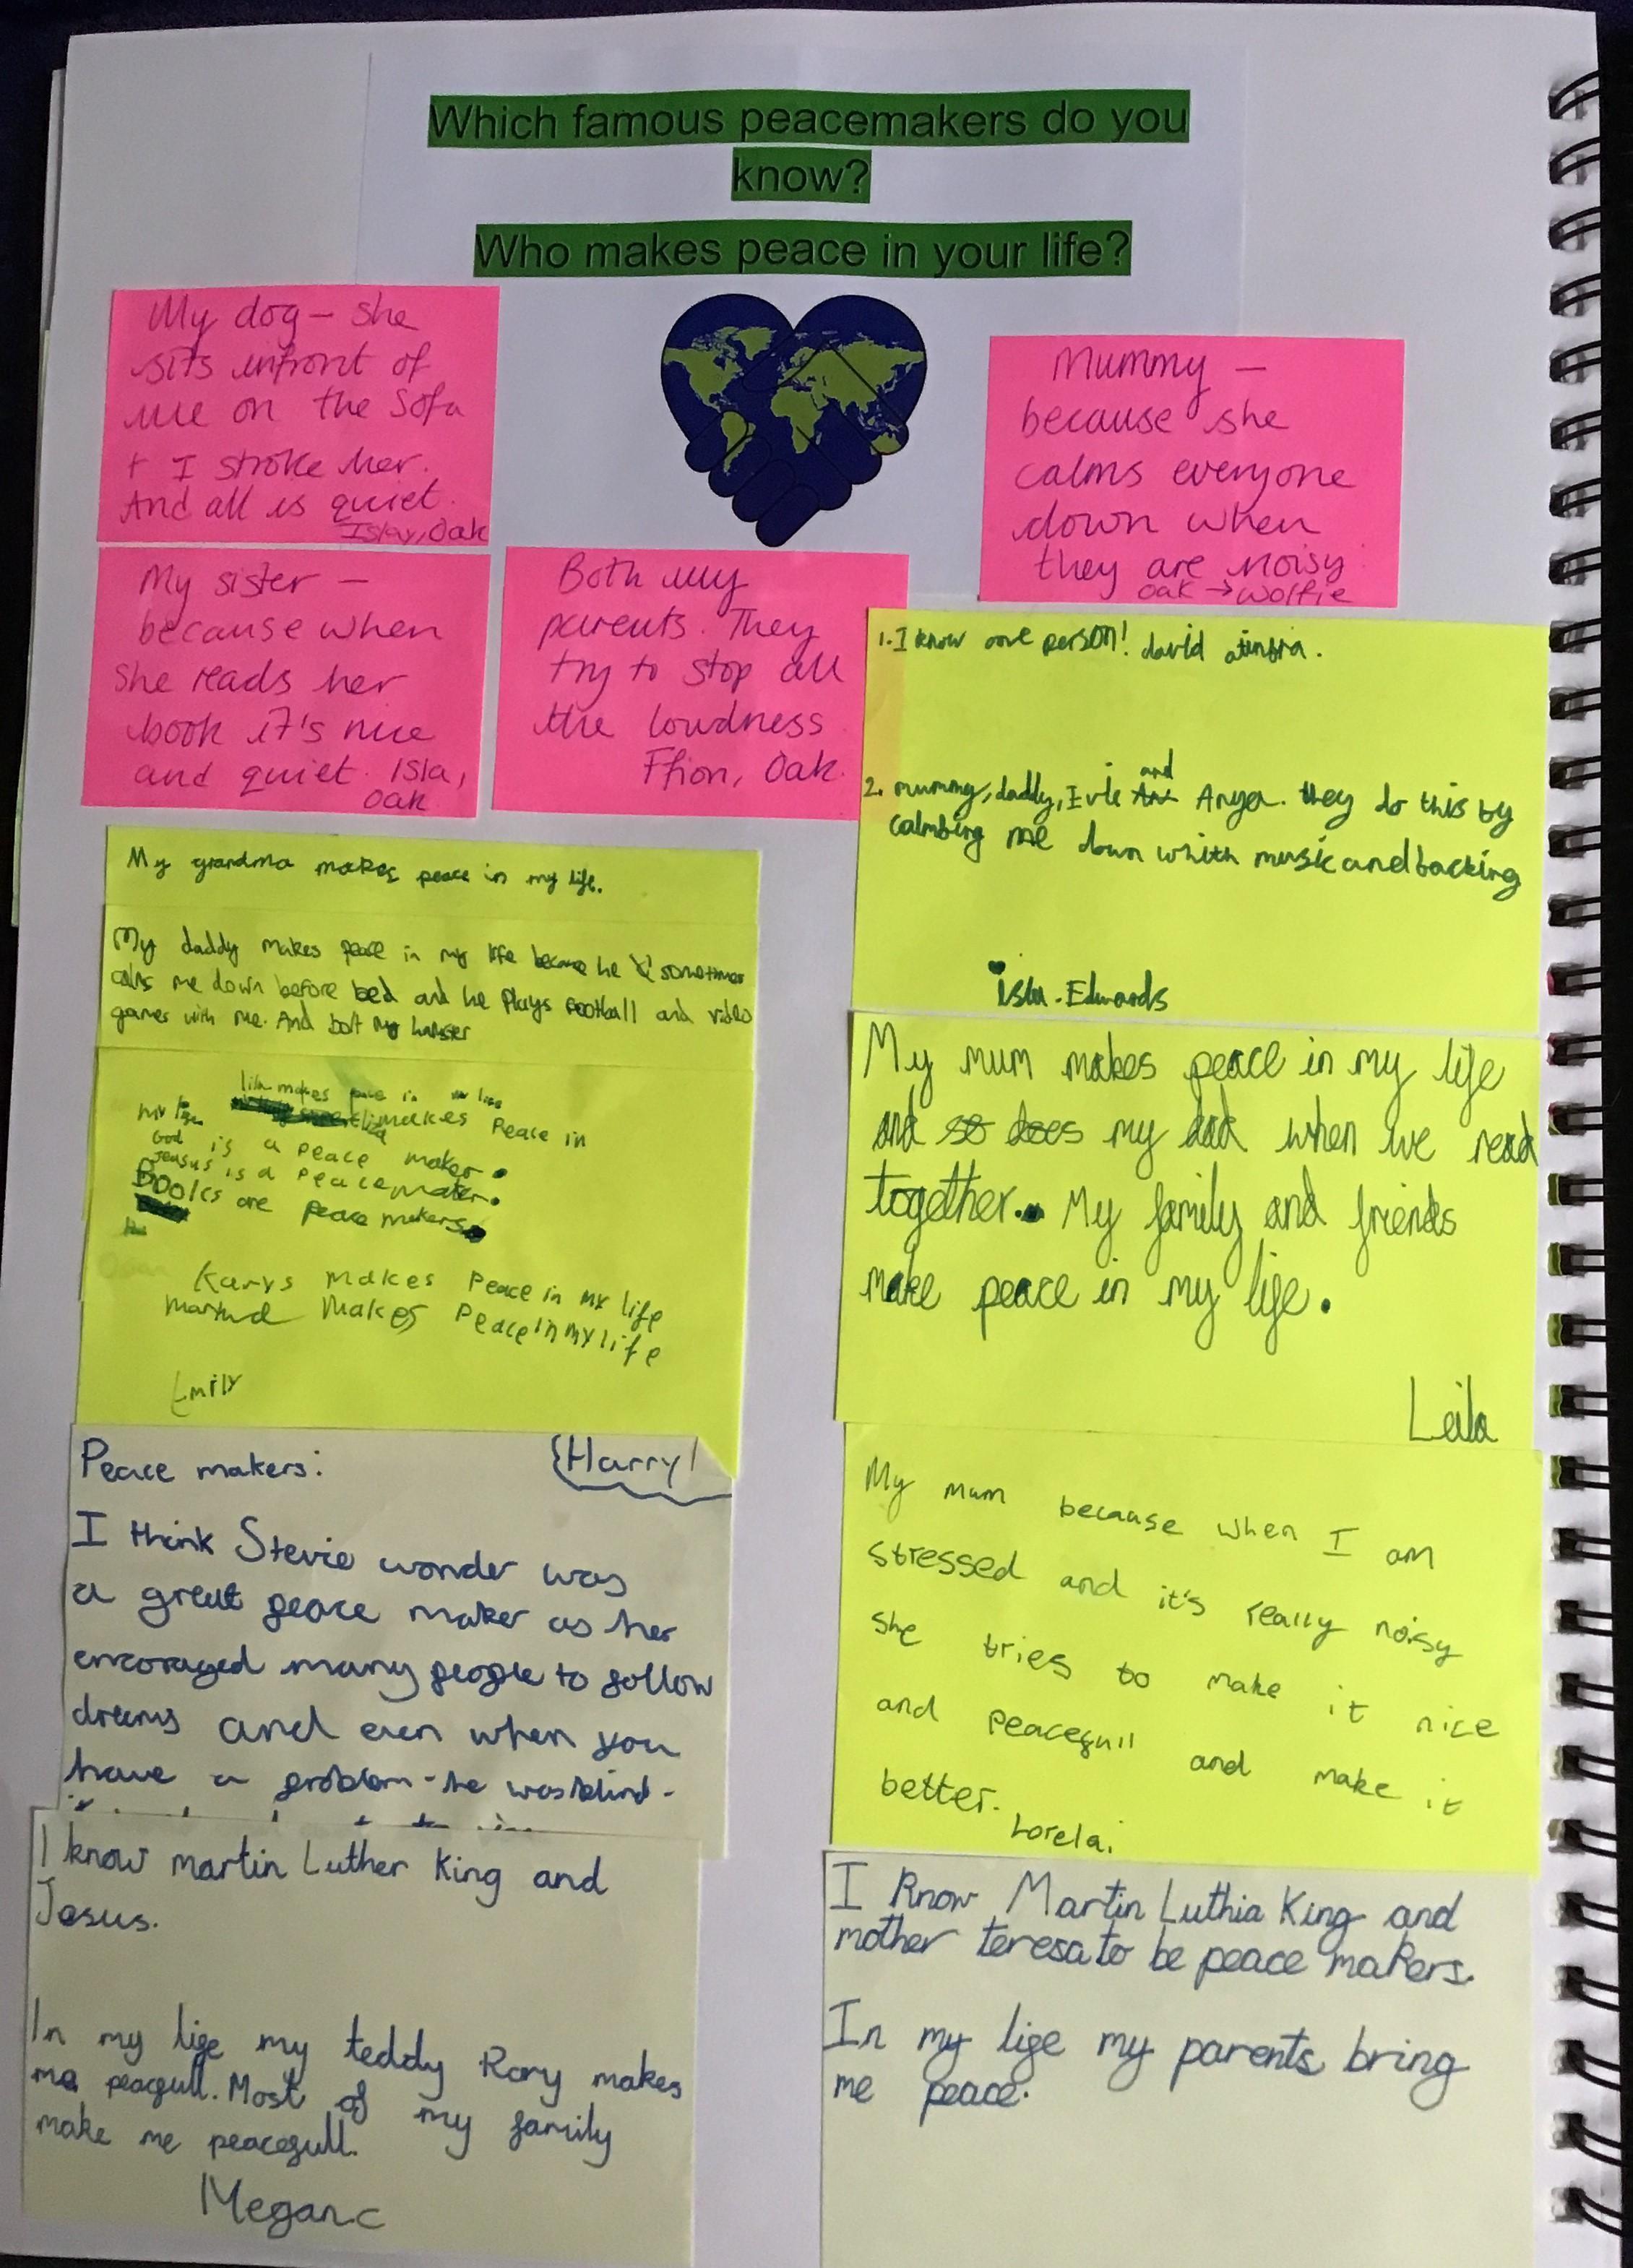 Which famous peacemakers do you
know?
Who makes peace in your life?
My dog – she
sits infront of
me on the sofa
+ I stroke her.
And all is quiet.
Isla, Oak
Mummy –
because she
calms everyone
down when
they are noisy
Oak → Wolfie
My sister –
because when
she reads her
book it's nice
and quiet. Isla,
Oak
Both my
parents. They
try to stop all
the loudness
Ffion, Oak.
1. I know one person! david
and
2. mummy, daddy, Evie Anya. they do this by
calmbing me down whith music and backing
isla. Edwards
My grandma makes peace in my life.
My daddy makes peace in my life because he sometimes
calms me down before bed and he plays football and video
games with me. And bolt my hamster
My mum makes peace in my life
and so does my dad when we read
together. My family and friends
make peace in my life.
Leila
lila makes peace in my life
makes Peace in
my life
God is a peace maker.
Jeasus is a Peacemaker.
Books are peace makers.
Karys makes Peace in my life
makes Peace in my life
Emily
Peace makers: Harry!
I think Stevie wonder was
a great peace maker as her
encoraged many people to follow
dreams and even when you
have a problem - he was blind -
My mum because when I am
stressed and it's really noisy
she tries to make it nice
and peacefull and make it
better.
Lorelai
I know martin Luther King and
Jesus.
In my life my teddy Rory makes
me peacfull. Most of my family
make me peacefull.
Megan c
I know Martin Luthia King and
mother teresa to be peace makers.
In my life my parents bring
me peace.